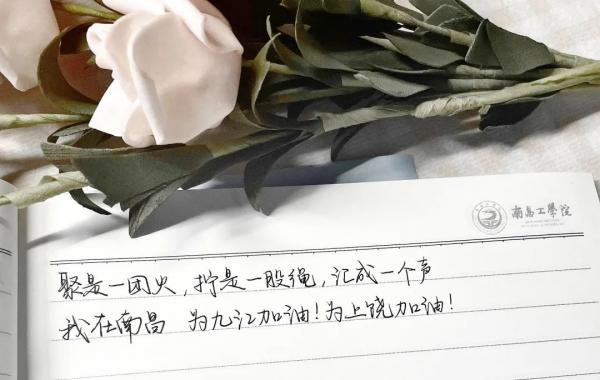 南昌工學院
聚是一团火，拧是一股绳，汇成一个声
我在南昌 为九江加油！为上饶加油！